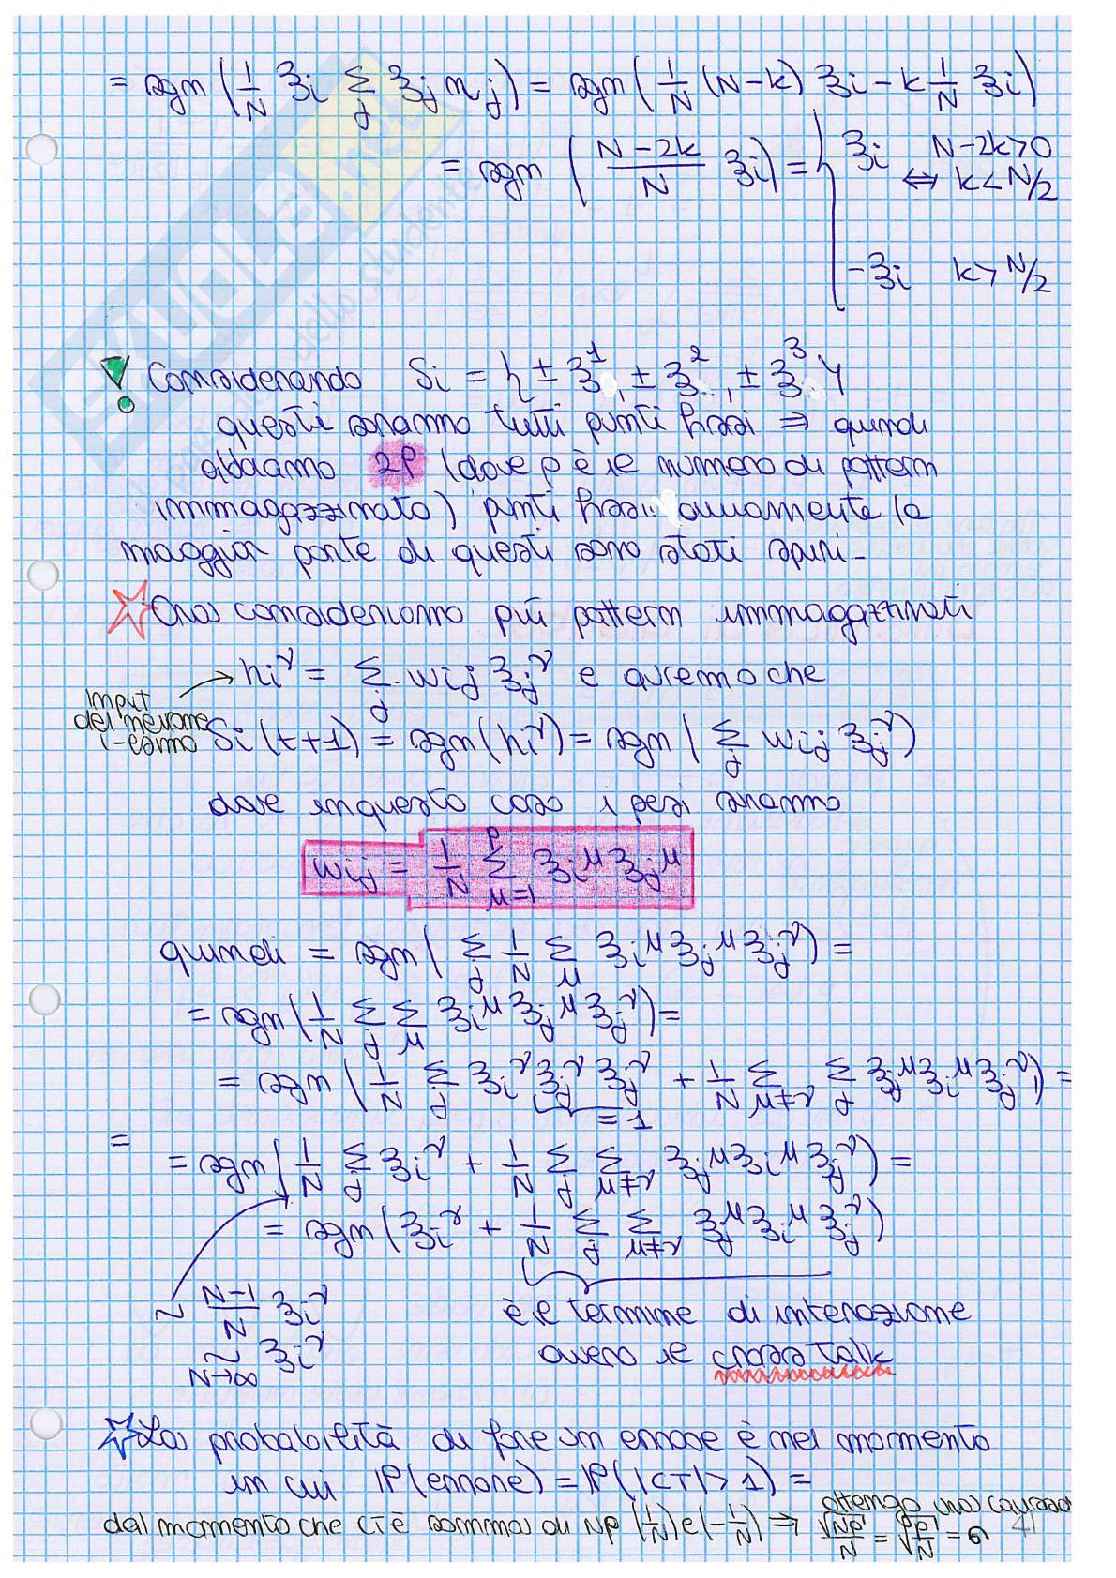 = sgn (1/N ξi Σj ξj nj) = sgn (1/N (N-k) ξi - k 1/N ξi)
= sgn ((N-2k)/N ξi) = { ξi N-2k>0
⇔ k<N/2
-ξi k>N/2
! Considerando Si = { ± ξ^1, ± ξ^2, ± ξ^3 }
questi saranno tutti punti fissi ⇒ quindi
abbiamo 2P (dove p è il numero di pattern
immagazzinato) punti fissi: ovviamente la
maggior parte di questi sono stati spuri-
☆ Ora consideriamo più pattern immagazzinati
→ hi^ν = Σj wij ξj^ν e avremo che
input
del neurone
i-esimo
Si(t+1) = sgn(hi^ν) = sgn( Σj wij ξj^ν )
dove in questo caso i pesi saranno
wij = 1/N Σ(μ=1, p) ξi^μ ξj^μ
quindi = sgn( Σj 1/N Σμ ξi^μ ξj^μ ξj^ν ) =
= sgn( 1/N Σj Σμ ξi^μ ξj^μ ξj^ν ) =
= sgn ( 1/N Σj ξi^ν ξj^ν ξj^ν + 1/N Σμ≠ν Σj ξj^μ ξi^μ ξj^ν ) =
= 1
=
= sgn( 1/N Σj ξi^ν + 1/N Σj Σμ≠ν ξj^μ ξi^μ ξj^ν ) =
= sgn( ξi^ν + 1/N Σj Σμ≠ν ξj^μ ξi^μ ξj^ν )
~ (N-1)/N ξi^ν
~ N→∞ ξi^ν
è il termine di interazione
ovvero il cross talk
☆ La probabilità di fare un errore è nel momento
in cui IP(errore) = IP(|CT|>1) =
dal momento che CT è somma di Np (1/N) e (-1/N) ⇒ ottengo una Gaussiana
√Np/N = √p/N = σ